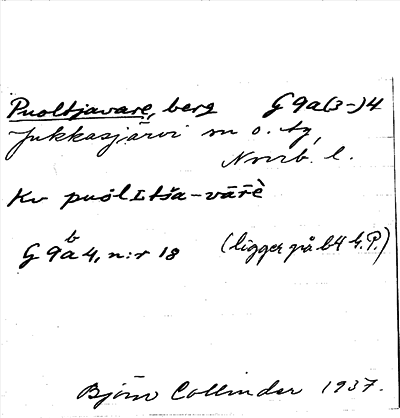 Puoltjavare, berg G 9a(3-)4
Jukkasjärvi sn o. tg,
Norrb. l.
Kv puo̍lItša-vārè
b
G 9a 4, n:r 18 (ligger på b4 G.P.)
Björn Collinder 1937.